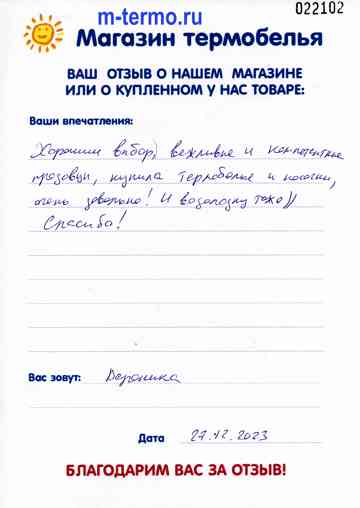 m-termo.ru
022102
Магазин термобелья
ВАШ ОТЗЫВ О НАШЕМ МАГАЗИНЕ
ИЛИ О КУПЛЕННОМ У НАС ТОВАРЕ:
Ваши впечатления:
Хороший выбор, вежливые и компетентные
продавцы, купила термобелье и носочки,
очень довольна! И водолазку тоже))
Спасибо!
Вас зовут: Вероника
Дата 27.12.2023
БЛАГОДАРИМ ВАС ЗА ОТЗЫВ!